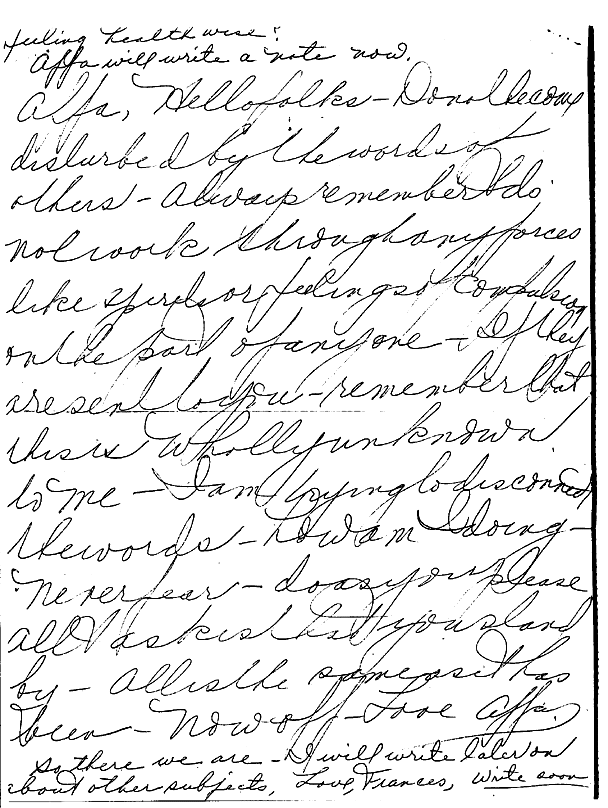 feeling health wise?
Affa will write a note now.
Affa, Hello folks - Do not become
disturbed by the words of
others - Always remember I do
not work through any forces
like spirits or feelings of compulsion
on the part of anyone - If they
are sent to you - remember that
this is wholly unknown
to me - I am trying to disconnect
the words - how am I doing -
Never fear - do as you please
all I ask is that you stand
by - All is the same as it has
been - Now off - Love Affa.
So there we are - I will write later on
about other subjects, Love, Frances, write soon